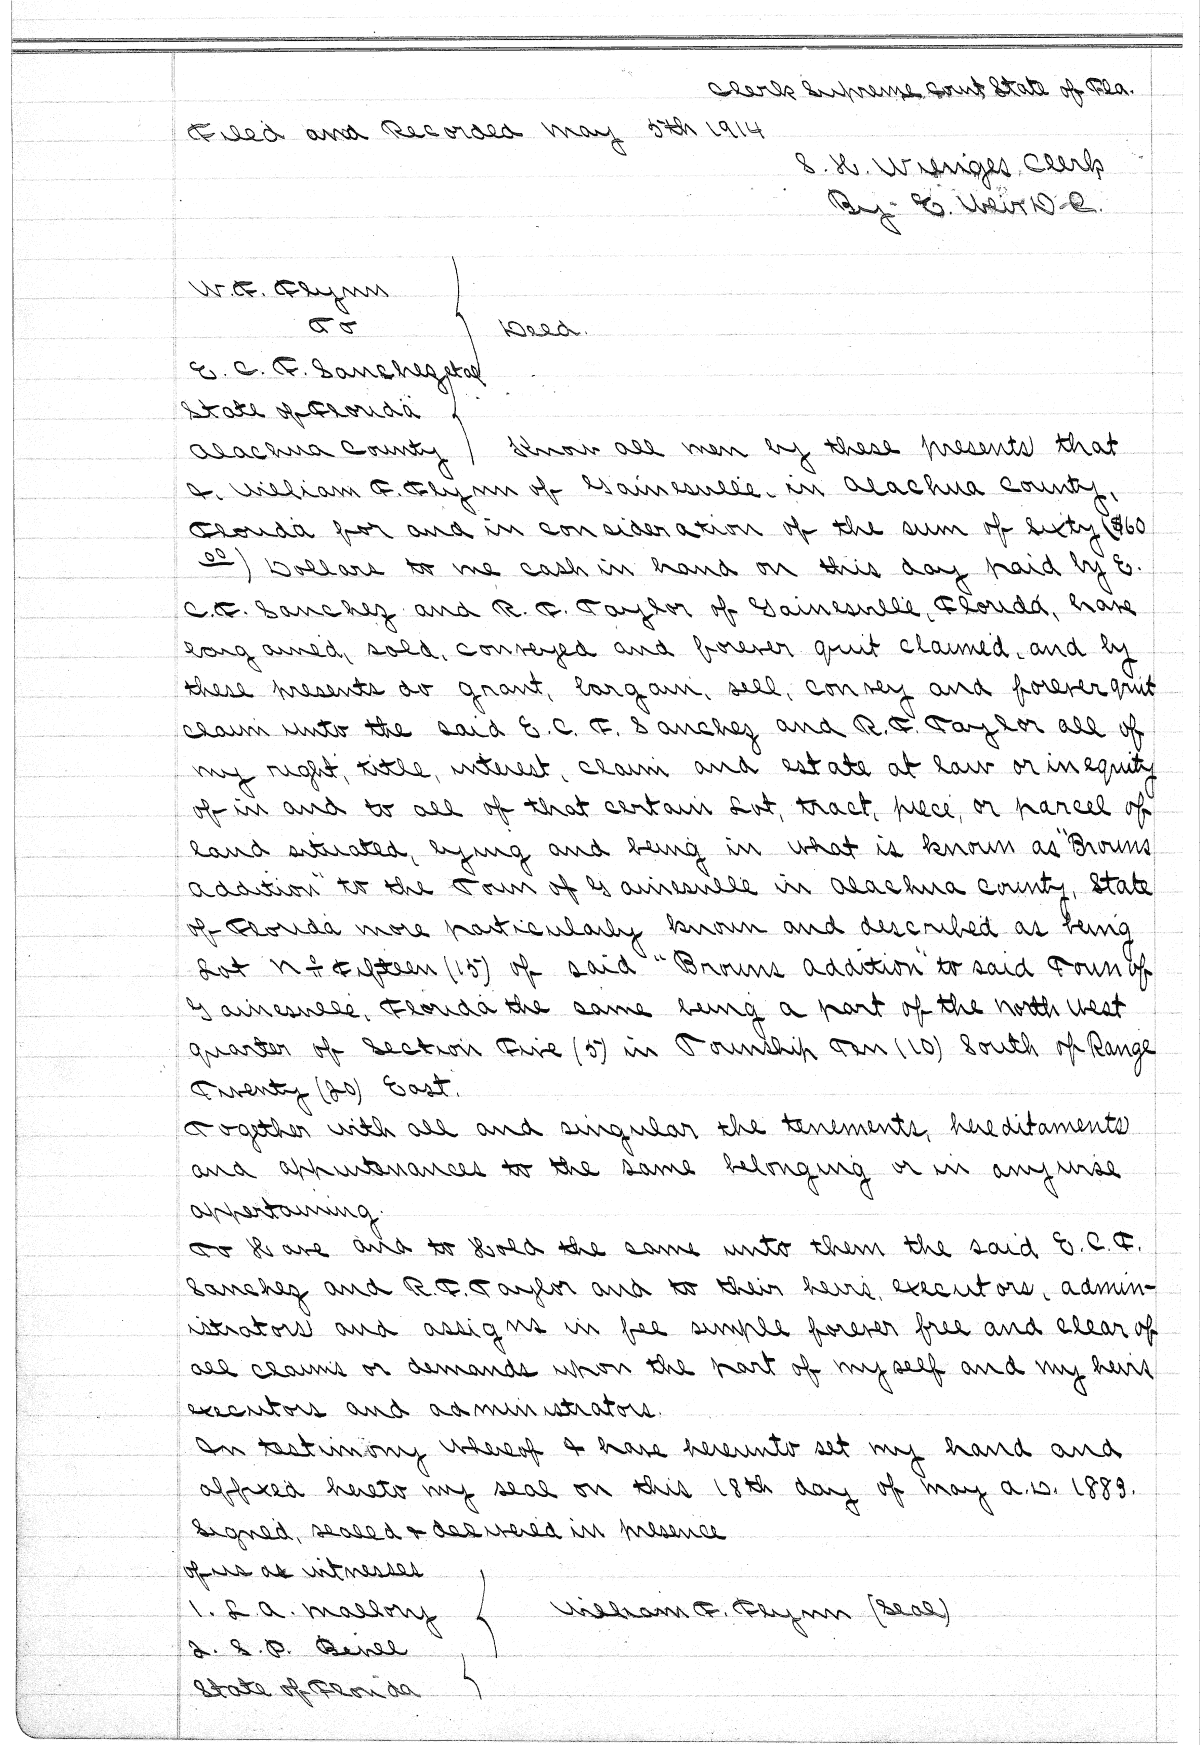 Clerk Supreme Court State of Fla.
Filed and Recorded May 5th 1914
S. H. Wienges, Clerk
By- E. Weir D.C.
W. F. Flynn
To
Deed.
E. C. F. Sanchez, et al
State of Florida
Alachua County } Know all men by these presents that
I, William F. Flynn of Gainesville, in Alachua County,
Florida for and in consideration of the sum of Sixty ($60
00) Dollars to me cash in hand on this day paid by E.
C. F. Sanchez and R. F. Taylor of Gainesville, Florida, have
bargained, sold, conveyed and forever quit claimed, and by
these presents do grant, bargain, sell, convey and forever quit
claim unto the said E. C. F. Sanchez and R. F. Taylor all of
my right, title, interest, claim and estate at law or in equity
of in and to all of that certain Lot, tract, piece, or parcel of
land situated, lying and being in what is known as "Browns
addition" to the Town of Gainesville in Alachua County, State
of Florida more particularly known and described as being
Lot No Fifteen (15) of said "Browns addition" to said Town of
Gainesville, Florida the same being a part of the north west
quarter of Section Five (5) in Township Ten (10) South of Range
Twenty (20) East.
Together with all and singular the tenements, hereditaments
and appurtenances to the same belonging or in anywise
appertaining.
To Have and to Hold the same unto them the said E. C. F.
Sanchez and R. F. Taylor and to their heirs, executors, admin-
istrators and assigns in fee simple forever free and clear of
all claims or demands upon the part of myself and my heirs
executors and administrators.
In testimony whereof I have hereunto set my hand and
affixed hereto my seal on this 18th day of May A.D. 1883.
Signed, sealed & delivered in presence
of us as witnesses
1. L. A. Mallory } William F. Flynn (Seal)
2. S. P. Bevill
State of Florida